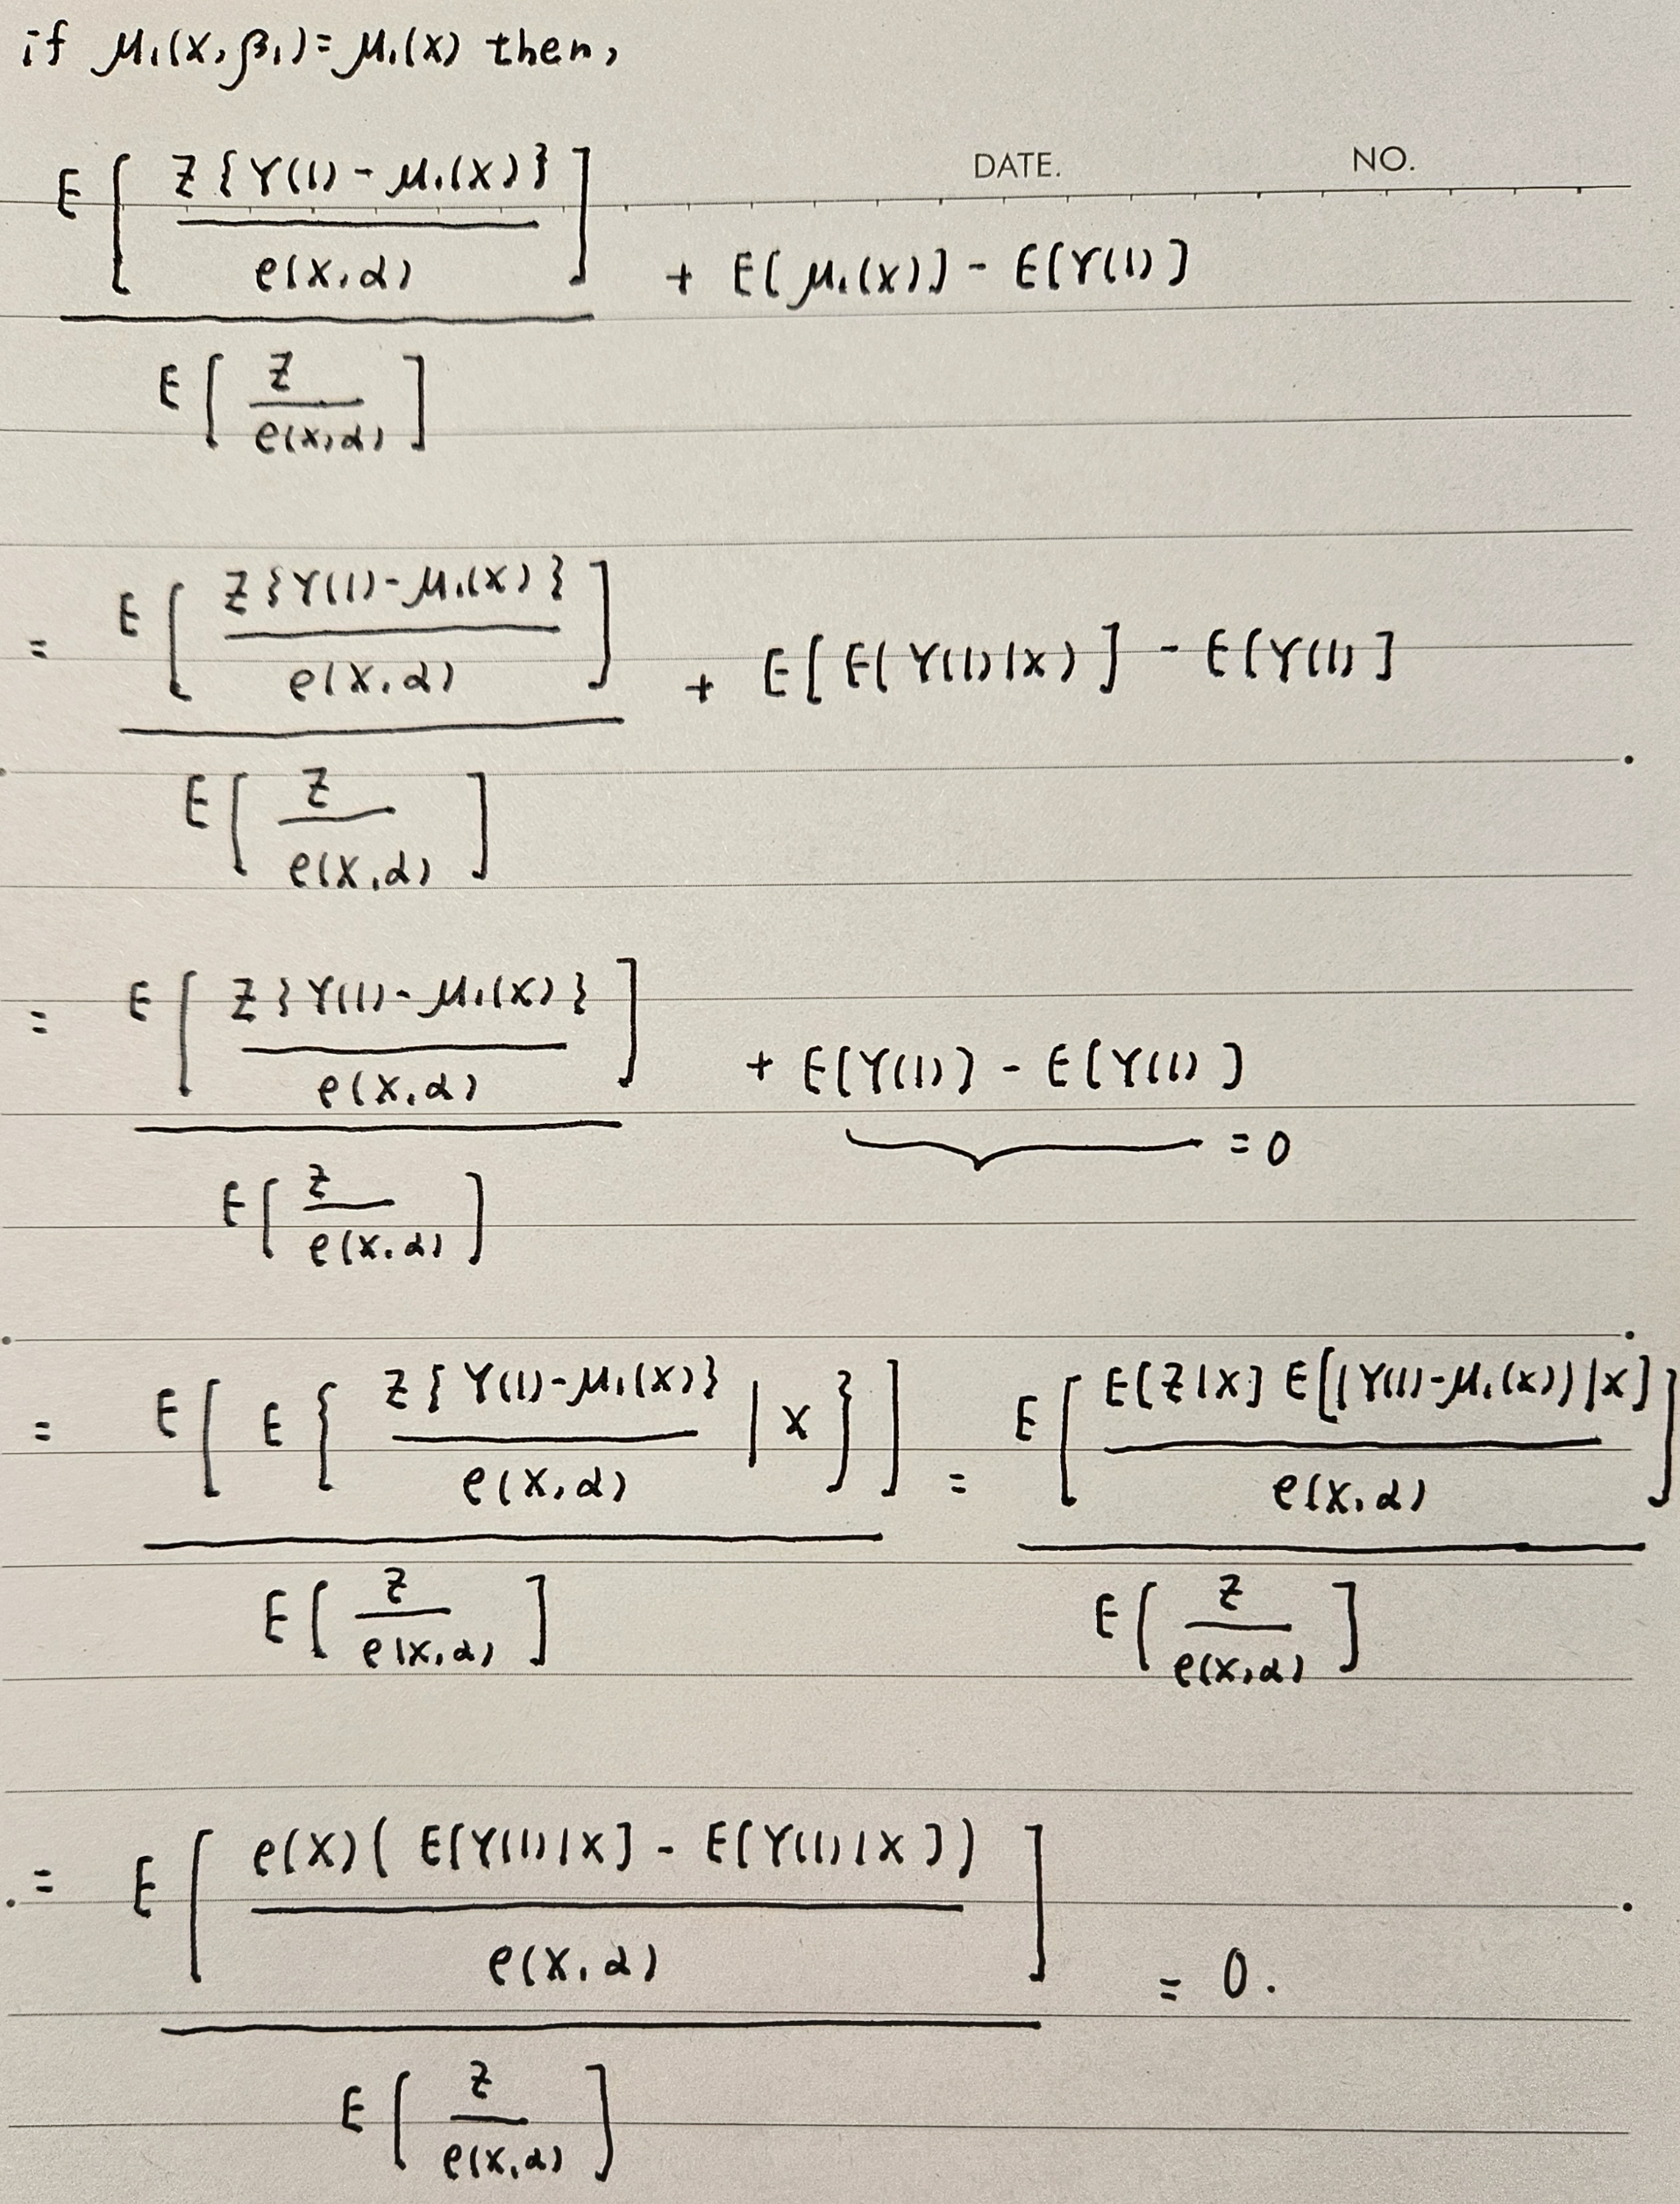 if μ₁(X, β₁) = μ₁(X) then,
DATE. NO.
E[ Z{Y(1) - μ₁(X)} / e(X,α) ] / E[ Z / e(X,α) ] + E[μ₁(X)] - E[Y(1)]
= E[ Z{Y(1) - μ₁(X)} / e(X,α) ] / E[ Z / e(X,α) ] + E[E(Y(1)|X)] - E[Y(1)]
= E[ Z{Y(1) - μ₁(X)} / e(X,α) ] / E[ Z / e(X,α) ] + E[Y(1)] - E[Y(1)] = 0
= E[ E{ Z{Y(1) - μ₁(X)} / e(X,α) | X } ] / E[ Z / e(X,α) ] = E[ E[Z|X] E[(Y(1) - μ₁(X))|X] / e(X,α) ] / E[ Z / e(X,α) ]
= E[ e(X)( E[Y(1)|X] - E[Y(1)|X] ) / e(X,α) ] / E[ Z / e(X,α) ] = 0.